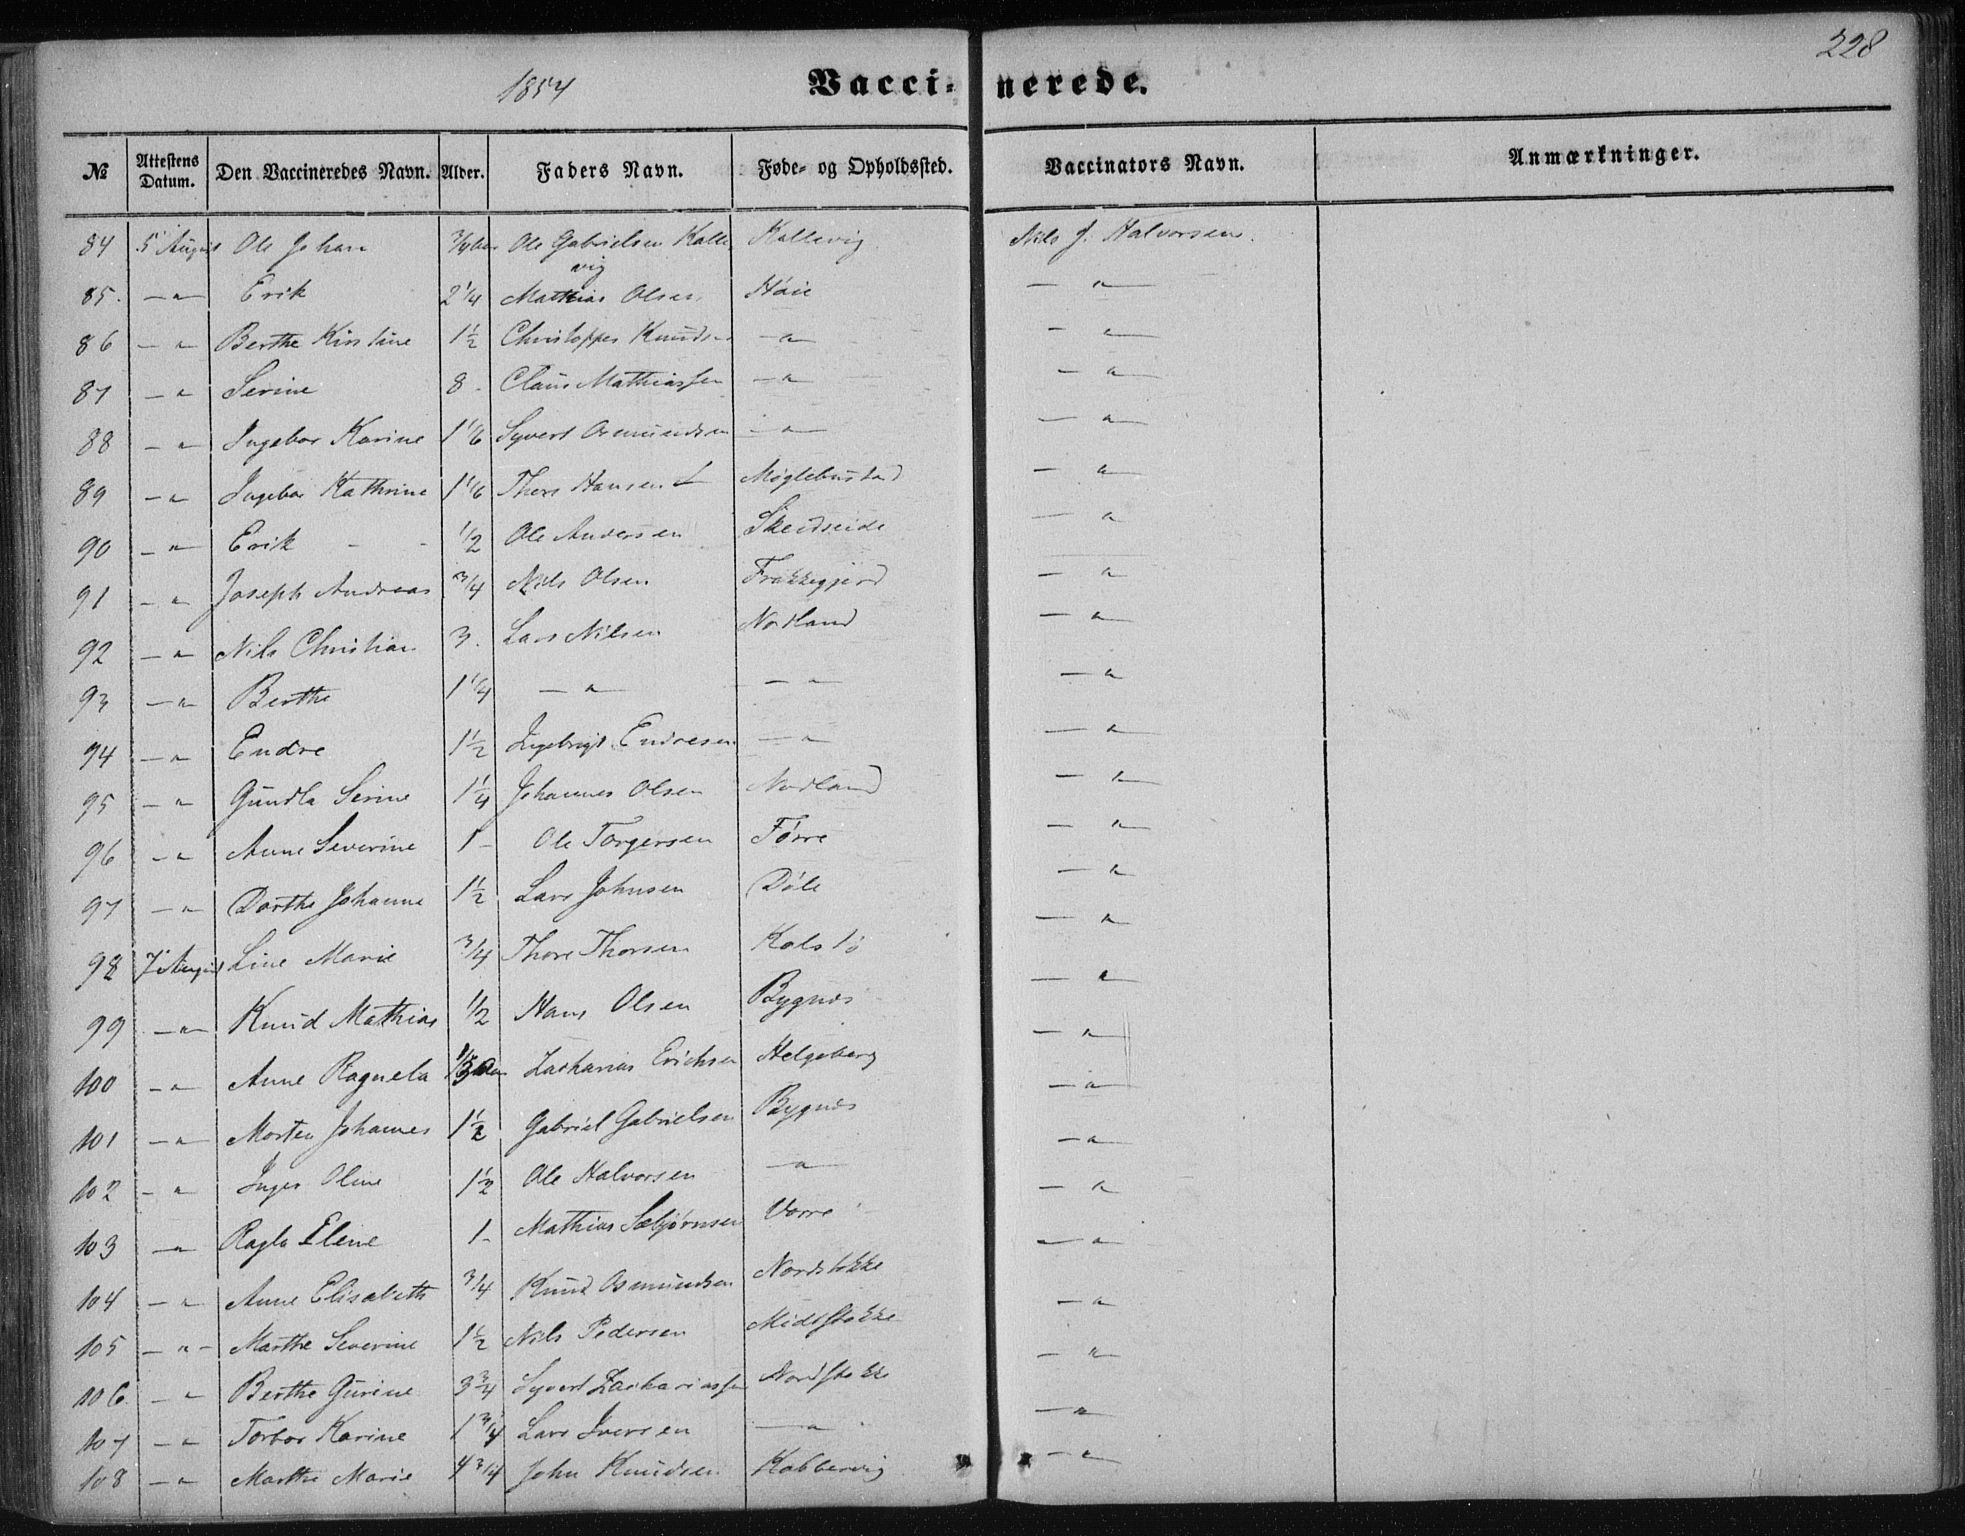 228
1854
Vaccinerede.
№ Attestens Datum. Den Vaccineredes Navn. Alder. Faders Navn. Føde- og Opholdssted. Vaccinators Navn. Anmærkninger.
84 5 August Ole Johan 3/4 Aar Ole Gabrielsen Kallevig Kallevig Nils J. Halvorsen.
85. — " — Erik 2 1/4 Mathias Olsen Høie — " —
86 — " Berthe Kirstine 1 1/2 Christopher Knudsen — " — — " —
87 — " Serine 8 - Claus Mathiassen — " — — " —
88 — " — Ingebor Karine 1 1/6 Syvert Osmundsen — " — — " —
89 — " Ingebor Kathrine 1 1/6 Thore Hansen Møglebustad — " —
90 — " — Erik 1/2 Ole Andersen Skeidseide — " —
91 — " Joseph Andreas 3/4 Nils Olsen Frakkegjerd — " —
92 — " Nils Christian 3. Lars Nilsen Nordland — " —
93 — " — Berthe 1 1/4 — " — — " — — " —
94 — " — Endre 1 1/2 Ingebrigt Endresen — " — — " —
95 — " Gundla Serine 1 1/4 Johannes Olsen Nordland — " —
96 — " Anne Severine 1 - Ole Torgersen Førre — " —
97 — " — Dorthe Johanne 1 1/2 Lars Johnsen Døle — " —
98 7 August Line Marie 3/4 Thore Thorsen Kolstø — " —
99 — " — Knud Mathias 1/2 Hans Olsen Bygnes — " —
100 — " Anne Ragnela Zacharias Erichsen Helgeberg — " —
101 — " — Morten Johannes 1 1/2 Gabriel Gabrielsen Bygnes — " —
102 — " Inger Oline 1 1/2 Ole Halvorsen — " — — " —
103 — " Ragla Elene 1 - Mathias Sæbjørnsen Vorre — " —
104 — " Anne Elisabeth 3/4 Knud Osmundsen Nordstokke — " —
105 — " - Marthe Severine 1 1/2 Nils Pedersen Midtstokke — " —
106. — " Berthe Gurine 3 3/4 Syvert Zachariassen Nordstokke — " —
107 — " Torbor Karine 1 3/4 Lars Iversen — " — — " —
108 — " Marthe Marie 4 3/4 John Knudsen Kobbervig — " —